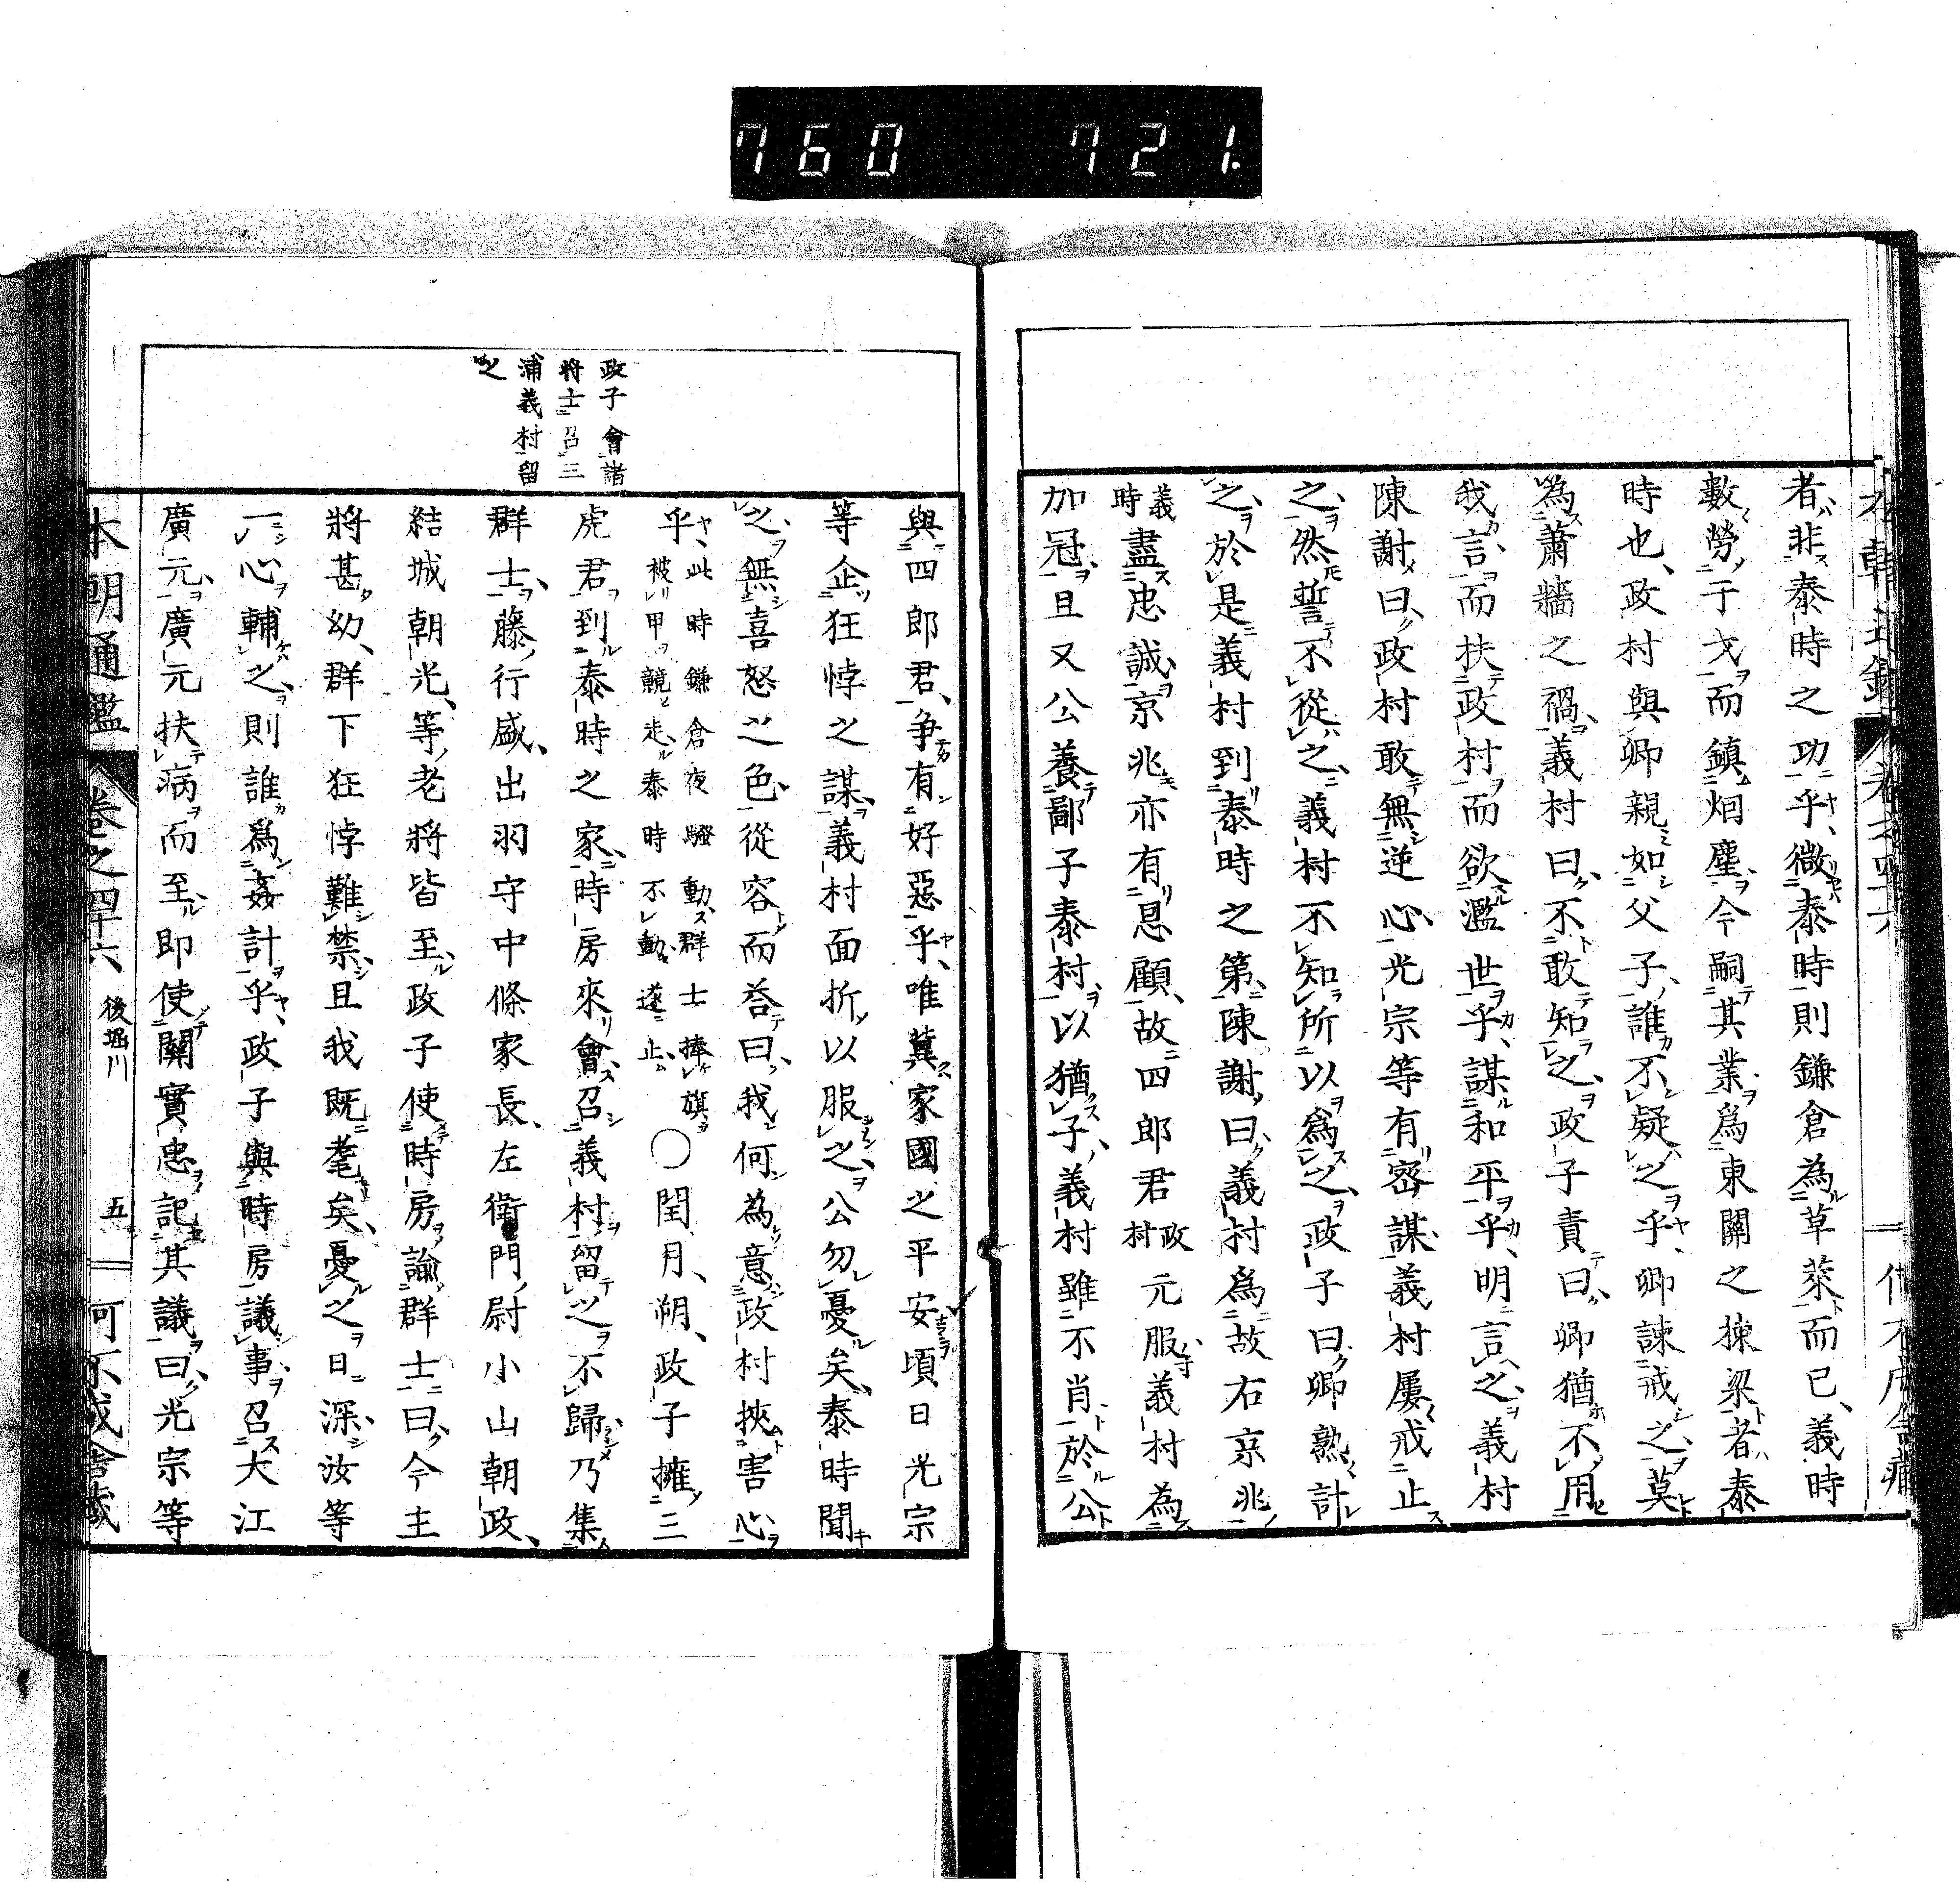 760 721.
者非泰時之功乎、微泰時則鎌倉為草萊而已、義時
數勞于戈而鎮烟塵、今嗣其業、爲東關之揀梁者泰
時也、政村與卿親如父子、誰不疑之乎、卿諫戒之、莫
為蕭牆之禍、義村曰、不敢知之、政子責曰、卿猶不用
我言而扶政村而欲濫世乎、謀和平乎、明言之、義村
陳謝曰、政村敢無逆心、光宗等有密謀、義村屢戒止
之、然誓不從之、義村不知所以爲之、政子曰、卿熟計
之、於是義村到泰時之第、陳謝曰、義村爲故右京兆
義時盡忠誠、京兆亦有恩顧、故四郎君政村元服義村為
加冠、且又公養鄙子泰村、以猶子、義村雖不肖於公
政子會諸
將士召三
浦義村留
之
與四郎君、争有好惡乎、唯冀家國之平安、頃日光宗
等企狂悖之謀、義村面折以服之、公勿憂矣、泰時聞
之、無喜怒之色、從容而荅曰、我何為意政村挾害心
乎、此時鎌倉夜騷動、群士捧旗被甲競走、泰時不動、遂止、〇閏月、朔、政子擁三
虎君到泰時之家、時房來會、召義村留之不歸、乃集
群士、藤行盛、出羽守中條家長、左衛門尉小山朝政、
結城朝光、等老將皆至、政子使時房諭群士曰、今主
將甚幼、群下狂悖難禁、且我既耄矣、憂之日深、汝等
一心輔之、則誰爲姦計乎、政子與時房議事、召大江
廣元、廣元扶病而至、即使關實忠記其議曰、光宗等
本朝通鑑 卷之四十六、 後堀川 五